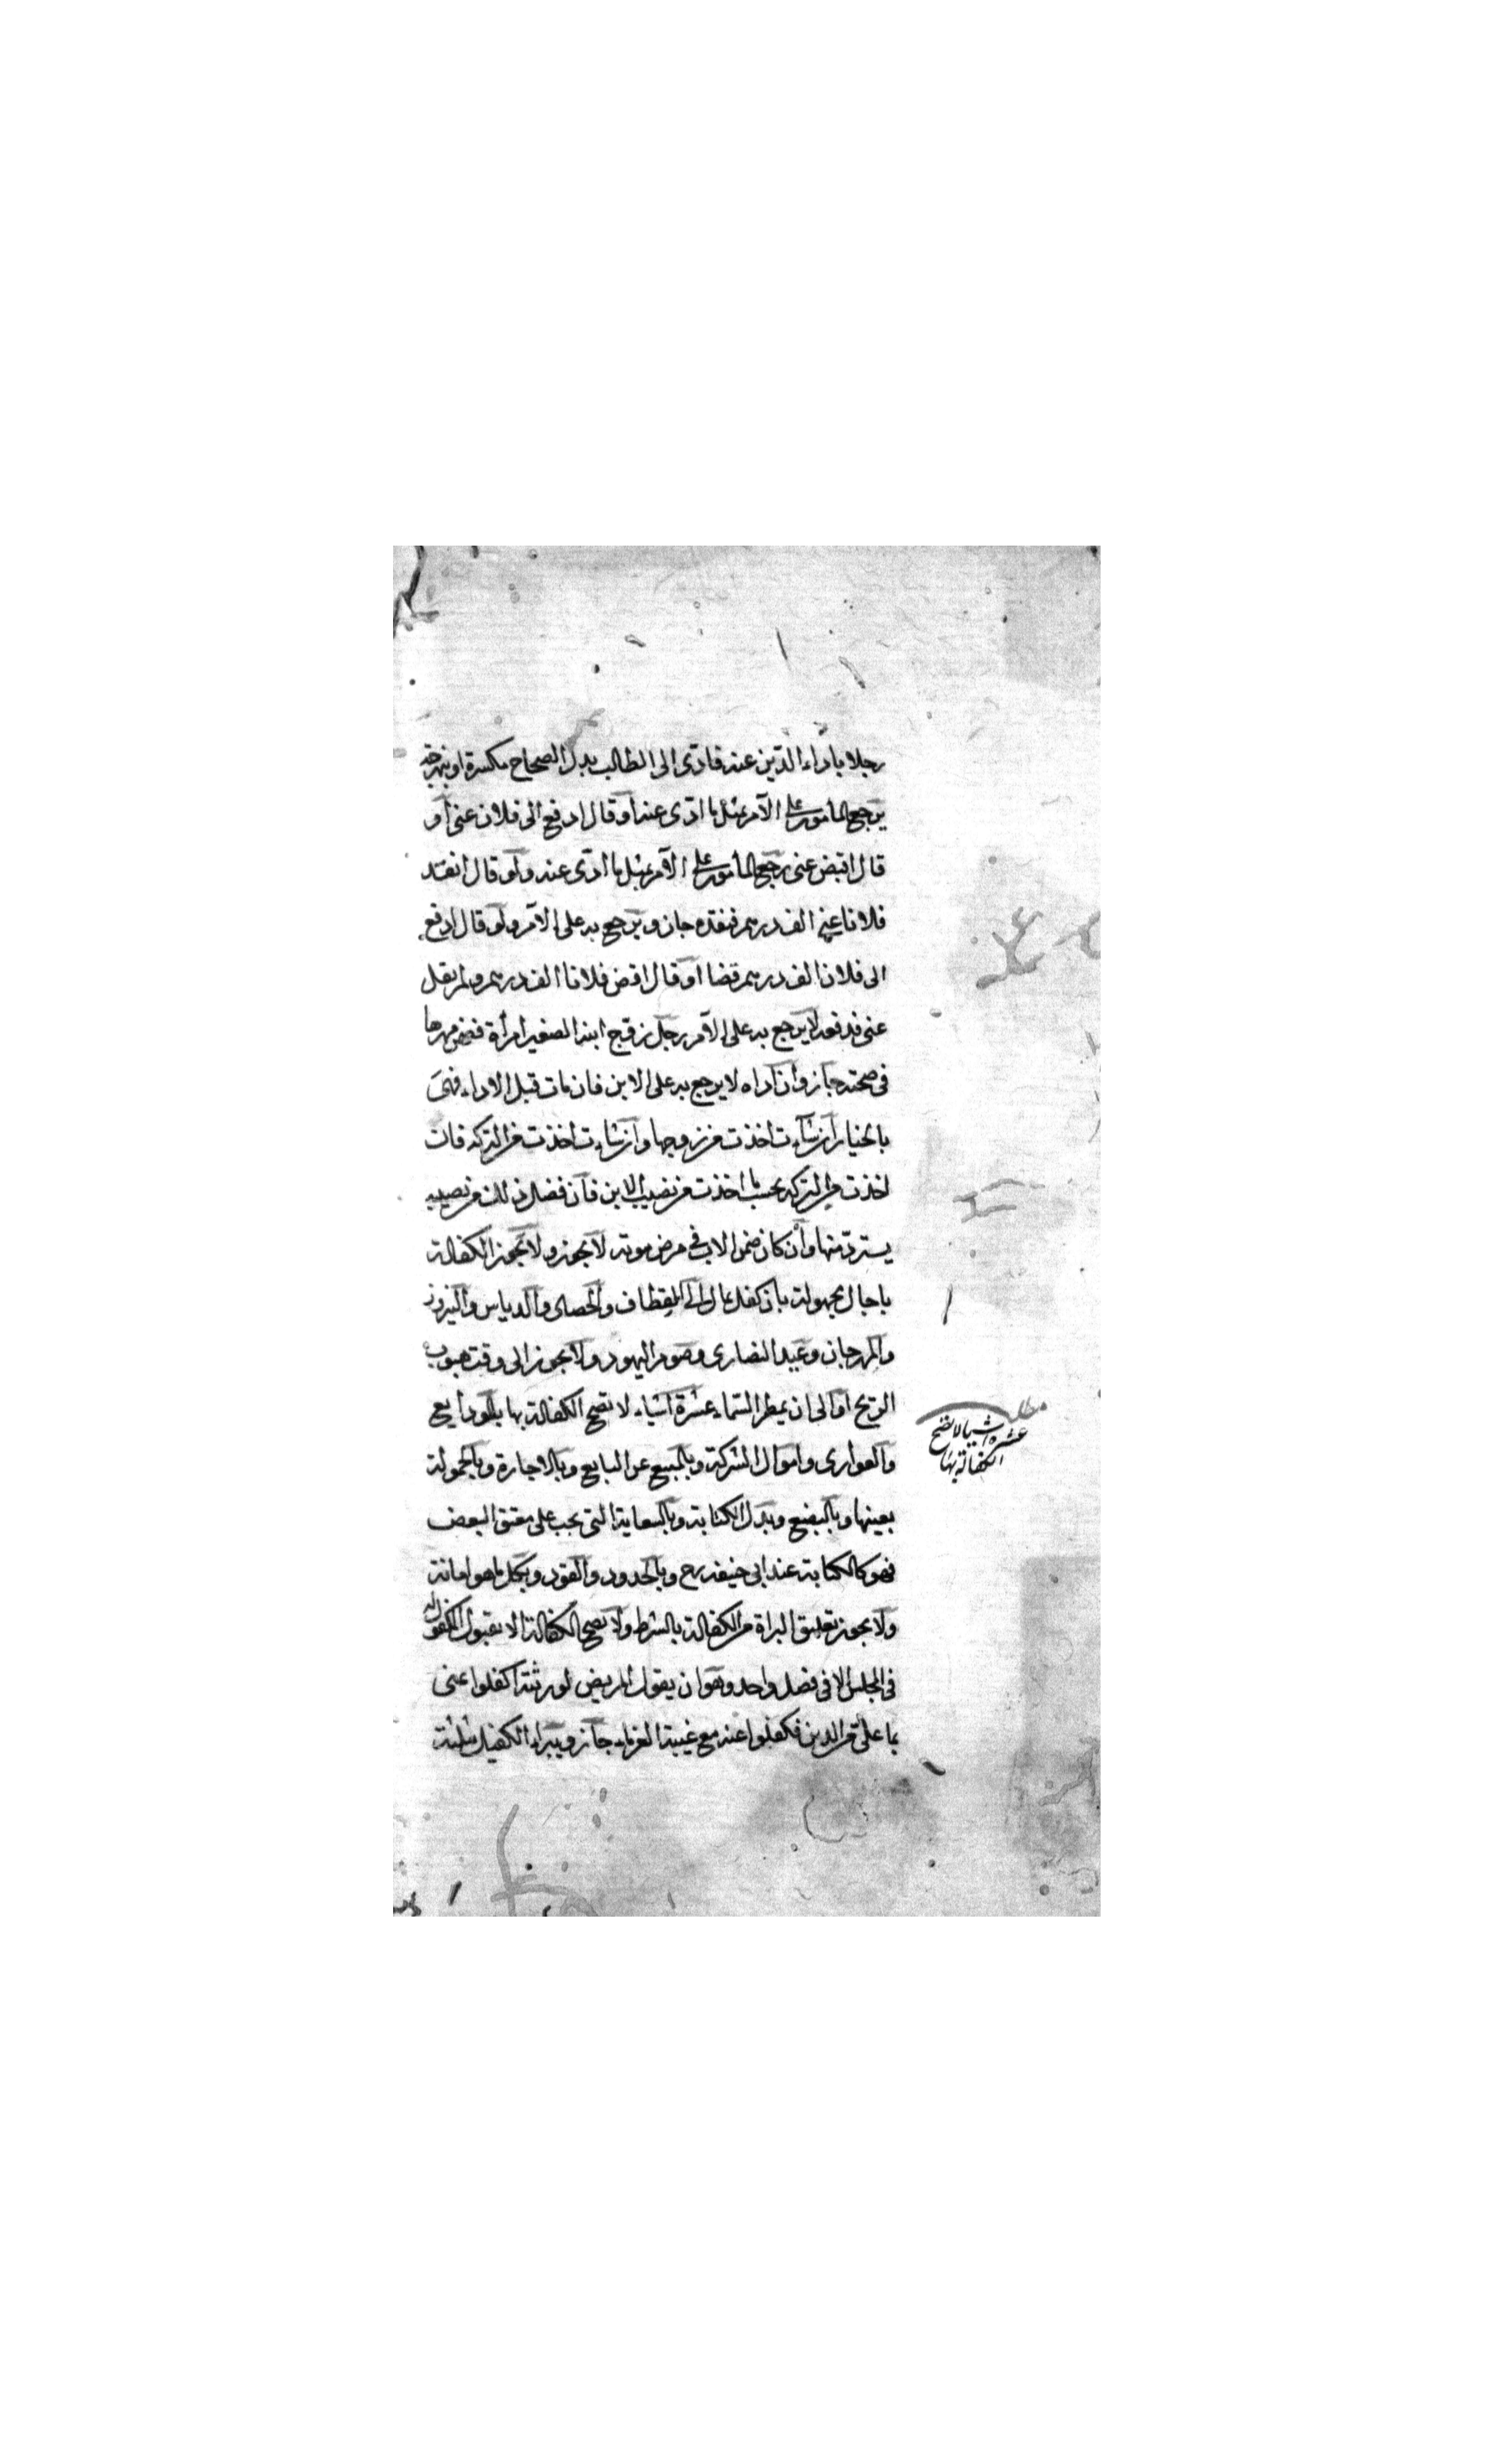 رجلا باداء الدّين عنه فادّى الى الطالب بدل الصحاح مكسرة او بنهرجة
يرجع المأمور على الآمر بمثل ما ادّى عنه او قال ادفع الى فلان عنى او
قال اقبض عنى رجع المأمور على الآمر بمثل ما ادّى عنه ولو قال انقد
فلانا عنى الف درهم فنقده جاز ويرجع به على الآمر ولو قال ادفع
الى فلان الف درهم قضا او قال اقض فلانا الف درهم ولم يقل
عنى فدفعه لا يرجع به على الآمر رجل زوّج ابنه الصغير امرأة فضمن مهرها
فى صحته جاز وان اداه لا يرجع به على الابن فان مات قبل الاداء فهى
بالخيار ان شاءت اخذت من زوجها وان شاءت اخذت من التركه فان
اخذت من التركه يحسب ما اخذت من نصيب الابن فان فضل ذلك من نصيبه
يستردّ منها وان كان ضمن الاب فى مرض موته لا يجوز ولا يجوز الكفالة
باجال مجهولة بان كفل بمال الى القطاف والحصاد والدياس والنيروز
والمهرجان وعيد النصارى وصوم اليهود ولا يجوز الى وقت هبوب
الريح او الى ان يمطر السّماء عشرة اشياء لا تصح الكفالة بها بالودايع
والعوارى واموال الشركة وبالمبيع عن البايع وبالاجارة وبالحمولة
بعينها وبالبضع وبدل الكتابة وبالسعاية التى يجب على معتق البعض
فهو كالكتابة عند ابى حنيفه رح وبالحدود والقود وبكل ما هو امانة
ولا يجوز تعليق البراة من الكفالة بالشرط ولا يصح الكفالة الا بقبول المكفول له
فى المجلس الا فى فصل واحد وهو ان يقول المريض لورثته اكفلوا عنى
بما علىّ من الدين فكفلوا عنه مع غيبة الغرماء جاز ويبراء الكفيل بثلثة
مطلب
عشرة اشيا لا تصح
الكفالة بها